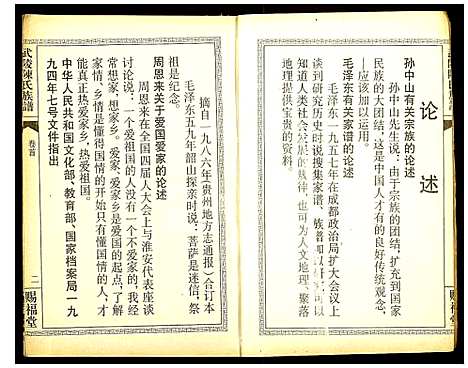 论述
孙中山有关宗族的论述
孙中山先生说：由于宗族的团结，扩充到国家
民族的大团结，这是中国人才有的良好传统观念，
应该加以运用。
毛泽东有关家谱的论述
毛泽东一九五七年在成都政治局扩大会议上
谈到研究历史时说搜集家谱、族谱加以研究，可以
知道人类社会发展的规律，也可为人文地理、聚落
地理提供宝贵的资料。
摘自一九八六年《贵州地方志通报》合订本
毛泽东五九年韶山探亲时说：菩萨是迷信，祭
祖是纪念。
周恩来关于爱国爱家的论述
周恩来在全国四届人大会上与淮安代表座谈
讨论说：一个不爱祖国的人没有一个不爱家的，我经
常想家，想家乡。爱家、爱家乡是爱国的起点，了解
家情，乡情是懂得国情的开始只有懂国情的人，才
能真正热爱家乡，热爱祖国。
中华人民共和国文化部、教育部、国家档案局一九
九四年七号文件指出
武陵陳氏族譜
卷首
二
赐福堂
赐福堂